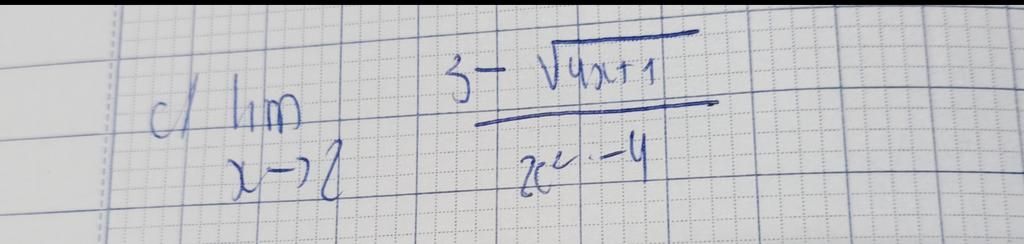 c/ lim x→2 (3 - √(4x+1)) / (x² - 4)